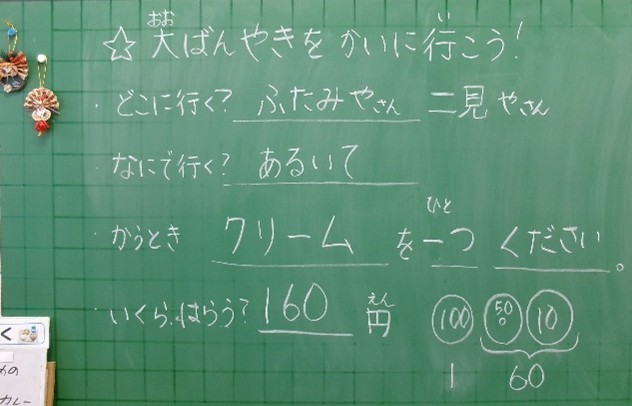 おお
☆大ばんやきをかいに行こう!
・どこに行く? ふたみやさん 二見やさん
なにで行く? あるいて
ひと
・かうとき クリームを一つください。
えん
・いくらはらう? 160円 100 50 10
1 60
く
の
カレー